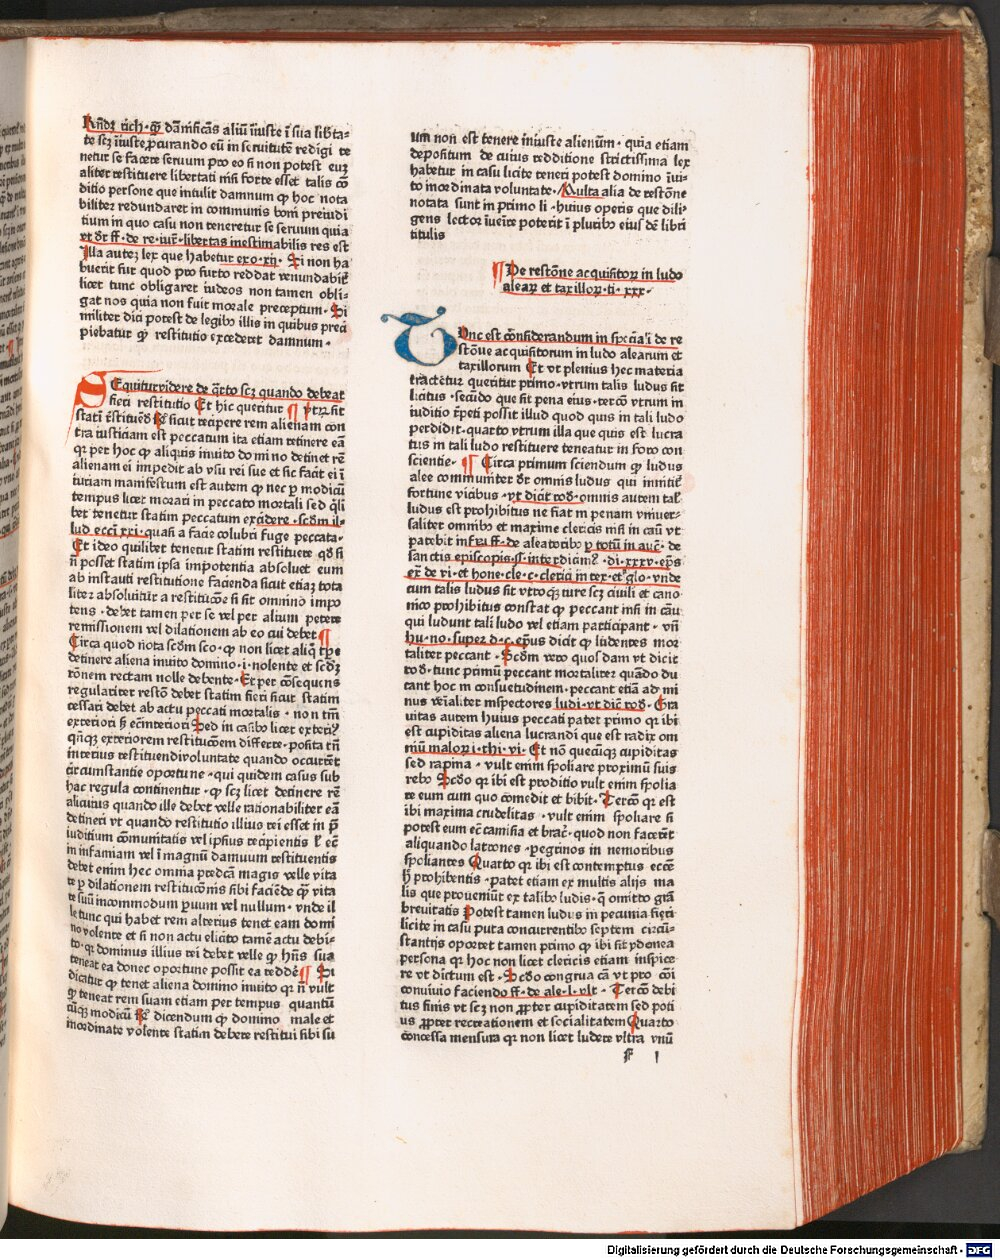 Rñdꝫ rich· ꝙ dãnificãs aliũ iniuste ĩ sua liƀta-
te scꝫ iniuste ꝓcurando eũ in seruitutē redigi te
netur se facere seruum pro eo si non potest eum
aliter restituere libertati nisi forte esset talis cõ
ditio persone que intulit damnum ꝙ hoc nota
biliter redundaret in communis boni preiudi
tium in quo casu non teneretur se seruum quia
vt dr̄ ff· de re· iur̄· libertas inestimabilis res est
Illa autez lex que habetur exo· xxij· Si non ha
buerit fur quod pro furto reddat venundabiť
licet tunc obligaret iudeos non tamen obli-
gat nos quia non fuit morale preceptum· Si
militer dici potest de legibꝰ illis in quibus preci
piebatur ꝙ restitutio excederet damnum·
SEquitur videre de q̃rto scꝫ quando debeat
fieri restitutio Et hic queritur ¶ vtꝝ sit
statĩ
sicut recipere rem alienam con
tra iusticiam est peccatum ita etiam retinere eã
qꝛ per hoc ꝙ aliquis inuito domino detinet rē
alienam ei impedit ab vsu rei sue et sic facit ei ĩ
iuriam manifestum est autem ꝙ nec ꝑ modicũ
tempus licet morari in peccato mortali sed q̃li
bet tenetur statim peccatum excidere· scđm il-
lud ecc̃i xxi· quasi a facie colubri fuge peccata·
Et ideo quilibet tenetur statim restituere qđ si
ñ posset statim ipsa impotentia absoluet eum
ab instanti restitutione facienda sicut etiaꝫ tota
liter absoluitur a restitucõe si sit omnino impo
tens· debet tamen per se vel per alium petere
remissionem vel dilationem ab eo cui debet ¶
Circa quod nota scđm sco· ꝙ non licet aliq̃ tp̃e
detinere aliena inuito domino· i· nolente et scđꝫ
rõnem rectam nolle debente· Et per cõsequens
regulariter restõ debet statim fieri sicut statim
cessari debet ab actu peccati mortalis· non tm̃
exteriori ꝫ ec̃ interiori Sed in casibꝰ licet exteriꝰ
qñqꝫ exteriorem restitucõem differre· posita tñ
interius restituendi voluntate quando occurrēt
circumstantie oportune· qui quidem casus sub
hac regula continentur· ꝙ scꝫ licet detinere rē
alicuius quando ille debet velle rationabiliter eã
detineri vt quando restitutio illius rei esset in p̃
iuditium cõmunitatis vel ipsius recipientis ľ ec̃
in infamiam vel ĩ magnũ damnum restituentis
debet enim hec omnia predcã magis velle vita
re ꝑ dilationem restitucõnis sibi faciēde ꝙ̃ vita
re suũ incommodum ꝑuum vel nullum· vnde il
le tunc qui habet rem alterius tenet eam domi
no volente et si non actu elicito tamē actu debi-
to· qꝛ dominus illius rei debet velle ꝙ hñs sua
teneat ea donec oportune possit ea reddẽ ¶ Si
dicatur ꝙ tenet aliena domino inuito qꝛ ñ vult
ꝙ teneat rem suam etiam per tempus quantũ
cũqꝫ modicũ dicendum ꝙ domino male et
inordinate volente statim debere restitui sibi su
um non est tenere iniuste alienum· quia etiam
depositum de cuius redditione strictissima lex
habetur in casu licite teneri potest domino ĩui-
to inordinata voluntate· Multa alia de restõne
notata sunt in primo li· huius operis que dili-
gens lector ĩuēire poterit ĩ pluribꝰ eiusdē libri
titulis
¶ De restõne acquisitoꝝ in ludo
aleaꝝ et taxilloꝝ· ti· xxx·
TUnc est cõnsiderandum in speciali de re
stõne acquisitorum in ludo alearum et
taxillorum Et vt plenius hec materia
tractetur queritur primo· vtrum talis ludus sit
licitus· secũdo que sit pena eius· tercõ vtrum in
iuditio r̃peti possit illud quod quis in tali ludo
perdidit· quarto vtrum illa que quis est lucra
tus in tali ludo restituere teneatur in foro con
scientie· ¶ Circa primum sciendum ꝙ ludus
alee communiter dr̄ omnis ludus qui innitiť
fortune viribus· vt dicit rođ· omnis autem taľ
ludus est prohibitus ne fiat in penam vniuer-
saliter omnibꝰ et maxime clericis nisi in cãu vt
patebit infra ff· de aleatoribꝰ ꝑ totũ in auc̃· de
sanctis episcopis· §· interdicimꝰ· di· xxxv· ep̃s
ex̃ de vi· et hone· cle· c· clerici in tex· et glo· vnde
cum talis ludus sit vtroqꝫ iure scꝫ ciuili et cano
nico prohibitus constat ꝙ peccant nisi in cãu
qui ludunt tali ludo vel etiam participant· vñ
hu· no· super d· c· ep̃us dicit ꝙ ludentes mor
taliter peccant· Scđm vero quosdam vt dicit
rođ· tunc primũ peccant mortaliter quãdo du
cant hoc in consuetudinem· peccant etiã ad mi
nus veĩaliter inspectores ludi· vt dic̃ rođ· Gra
uitas autem huius peccati patet primo qꝛ ibi
est cupiditas aliena lucrandi que est radix om
niũ maloꝝ i· thi· vi· Et nõ quecũqꝫ cupiditas
sed rapina· vult enim spoliare proximũ suis
rebꝰ Scđo qꝛ ibi est proditio vult enim spolia
re eum cum quo comedit et bibit· Tercõ qꝛ est
ibi maxima crudelitas· vult enim spoliare si
potest eum ec̃ camisia et brac̃· quod non facerēt
aliquando latrones· pegrinos in nemoribus
spoliantes Quarto qꝛ ibi est contemptus ecc̃e
ħ prohibentis· patet etiam ex multis alijs ma
lis que proueniũt ex talibꝰ ludis· q̃ omitto gr̃a
breuitatis Potest tamen ludus in pecunia fieri
licite in casu puta concurrentibꝰ septem circũ-
stantijs oportet tamen primo ꝙ ibi sit ydonea
persona qꝛ hoc non licet clericis etiam inspice
re vt dictum est· Scđo congrua cã vt pro cõi
conuiuio faciendo ff· de ale· l· vlt· Tercõ debi
tus finis vt scꝫ non ꝓpter cupiditatem sed poti
us ꝓpter recreationem et socialitatem Quarto
concessa mensura qꝛ non licet ludere vltra vnũ
F 1
Digitalisierung gefördert durch die Deutsche Forschungsgemeinschaft - DFG